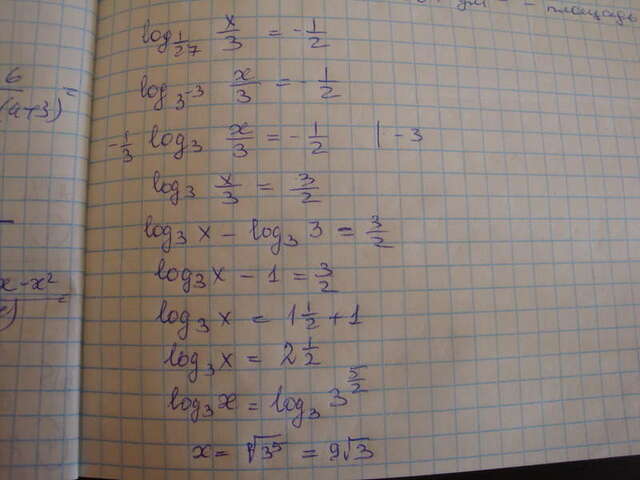 площадь
6/(a+3) =
x - x²
log_{1/27} x/3 = -1/2
log_{3^{-3}} x/3 = -1/2
-1/3 log_3 x/3 = -1/2 | -3
log_3 x/3 = 3/2
log_3 x - log_3 3 = 3/2
log_3 x - 1 = 3/2
log_3 x = 1 1/2 + 1
log_3 x = 2 1/2
log_3 x = log_3 3^{5/2}
x = √3^5 = 9√3